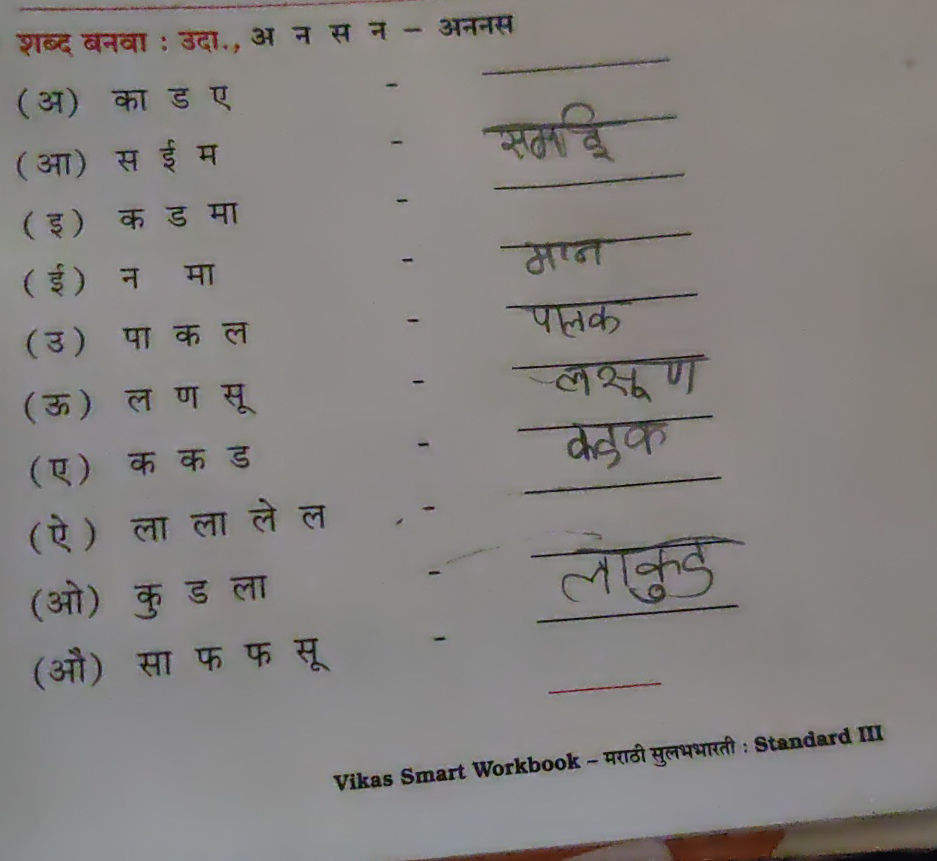 शब्द बनवा : उदा., अ न स न – अननस
(अ) का ड ए -
(आ) स ई म - समई
(इ) क ड मा -
(ई) न मा - मान
(उ) पा क ल - पालक
(ऊ) ल ण सू - लसूण
(ए) क क ड - कडक
(ऐ) ला ला ले ल -
(ओ) कु ड ला - लाकुड
(औ) सा फ फ सू -
Vikas Smart Workbook – मराठी सुलभभारती : Standard III